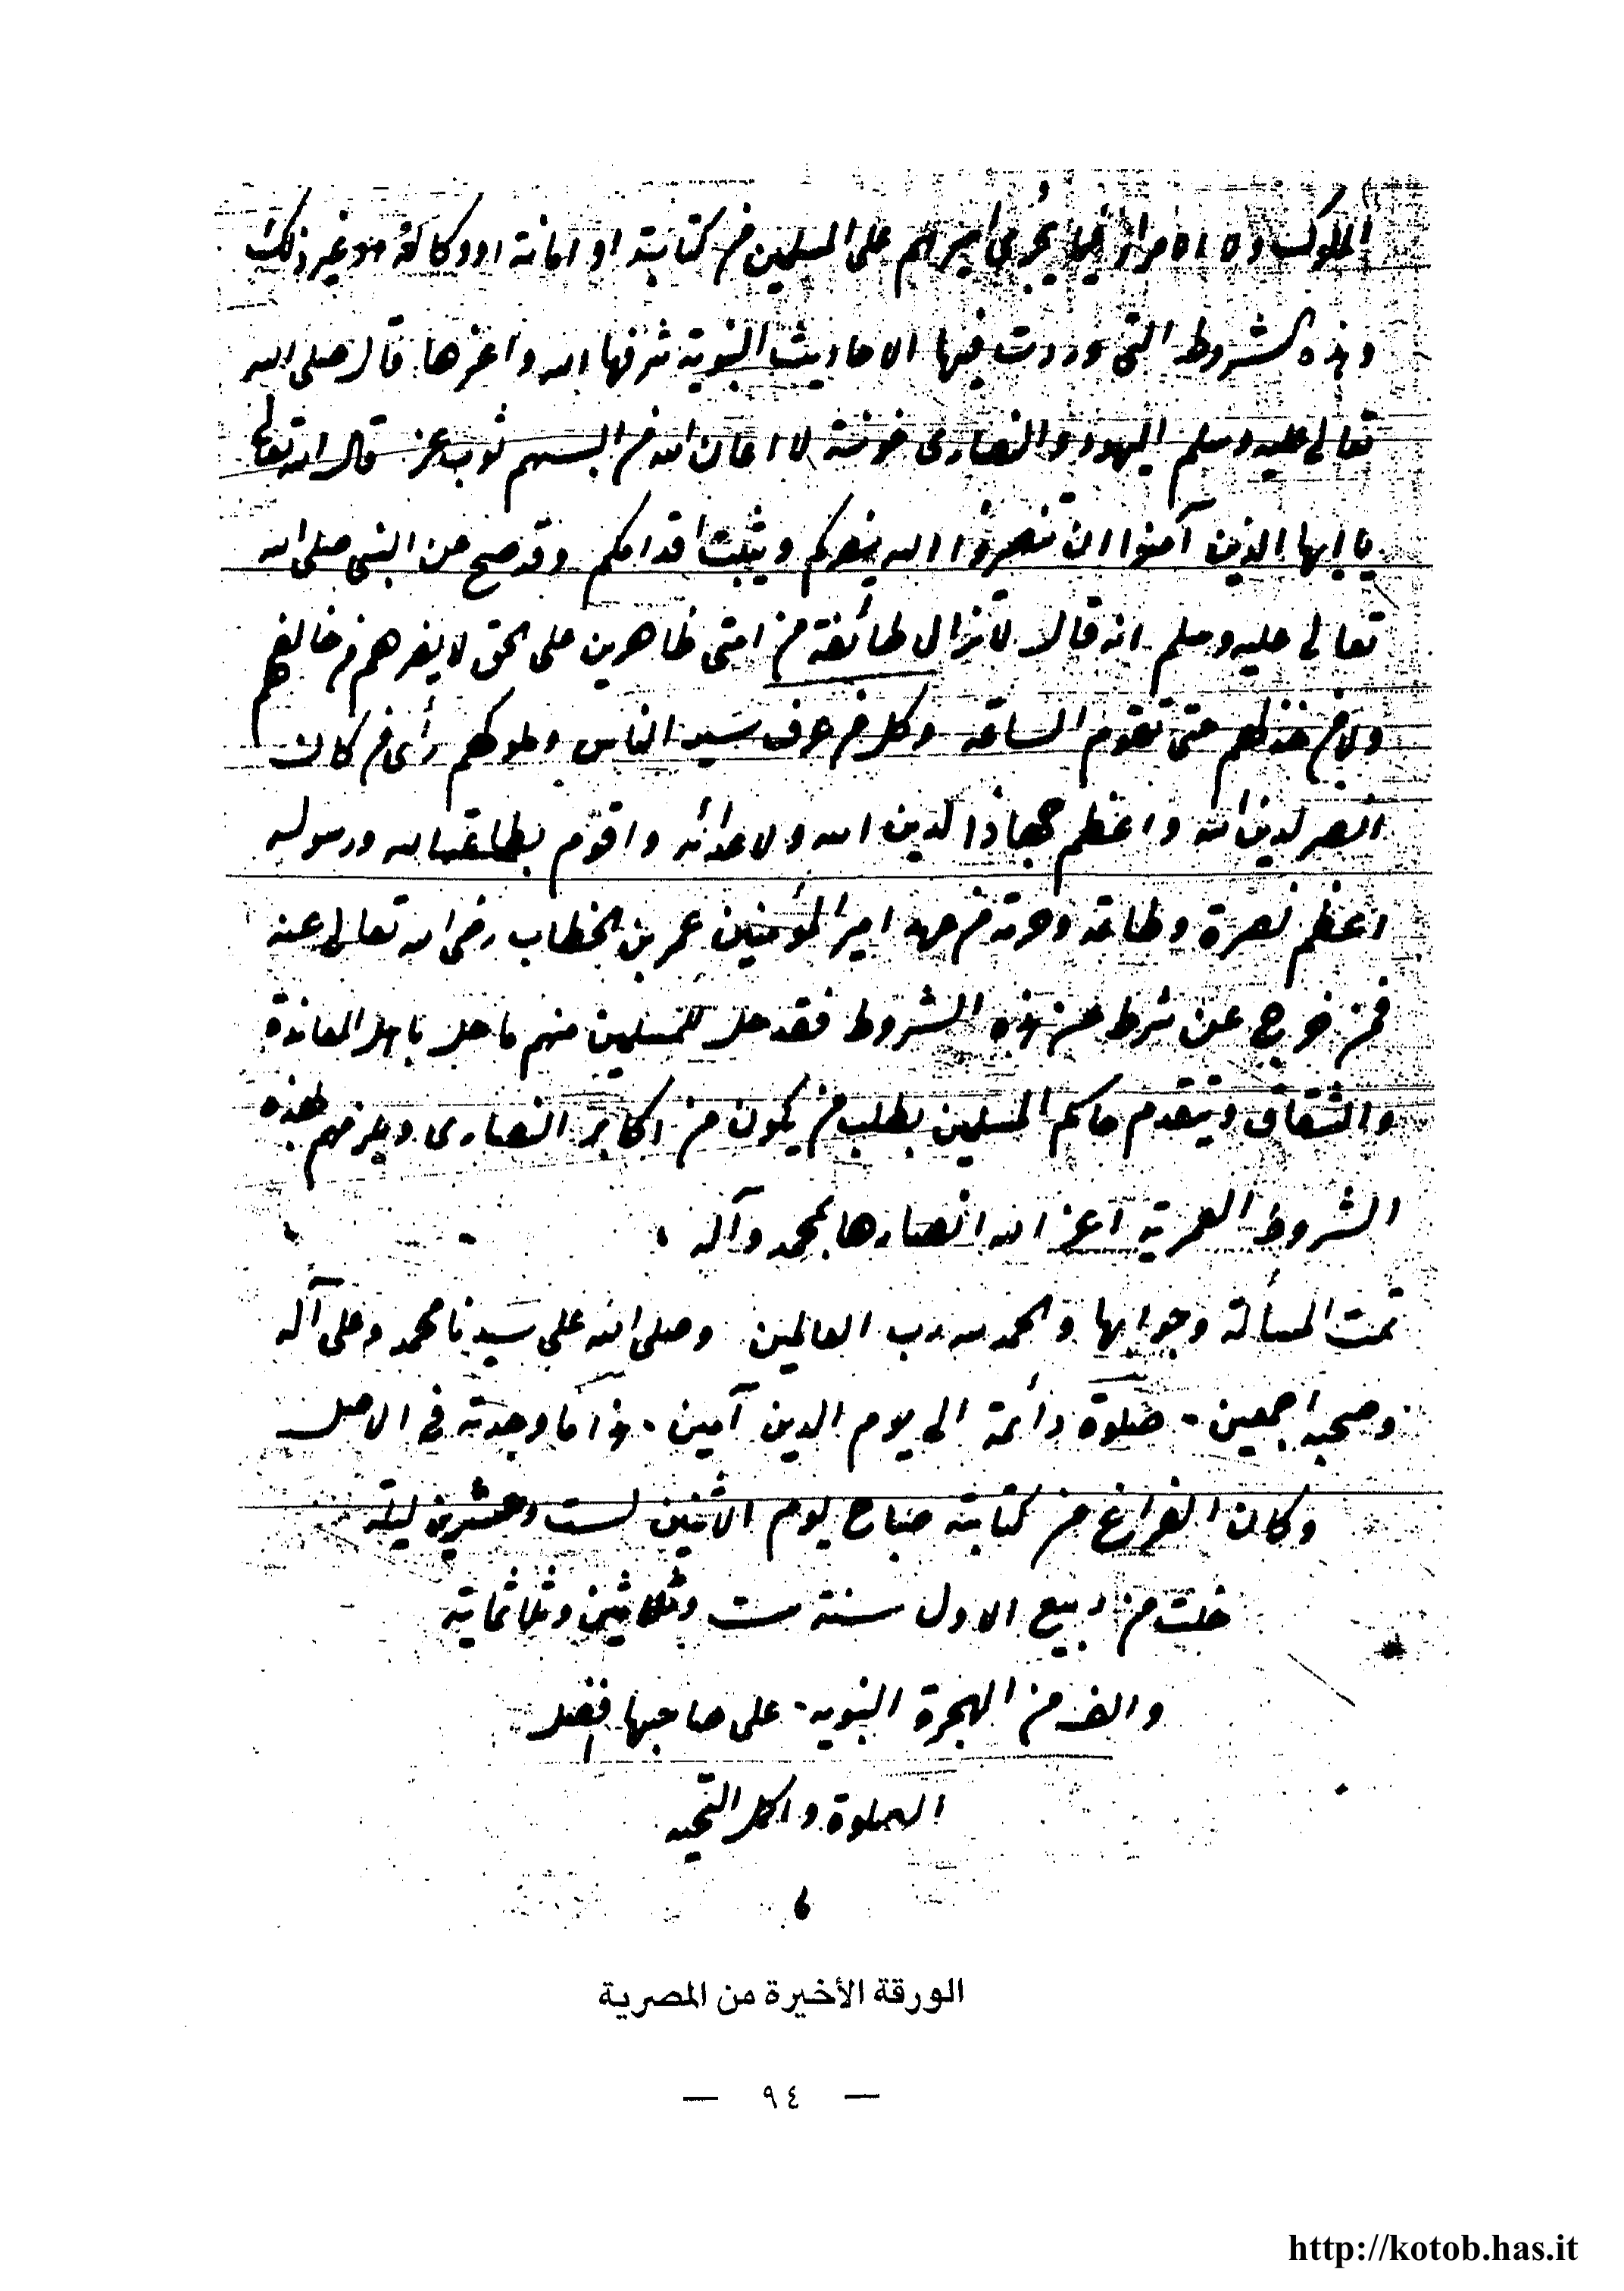 الملوك ولا الامراء فيما يجري امرهم على المسلمين من كتابة او امانة او وكالة او غير ذلك
وهذه الشروط التي وردت فيها الاحاديث النبوية شرفها الله واعزها قال صلى الله
تعالى عليه وسلم اليهود والنصارى خونة لا اعان الله من البسهم ثوب عز قال الله تعالى
يا ايها الذين آمنوا ان تنصروا الله ينصركم ويثبت اقدامكم وقد صح عن النبي صلى الله
تعالى عليه وسلم انه قال لا تزال طائفة من امتي ظاهرين على الحق لا يضرهم من خالفهم
ولا من خذلهم حتى تقوم الساعة وكل من عرف سير الناس وملوكهم رأى من كان
انصر لدين الله واعظم جهادا لدين الله ولاعدائه واقوم بطاعة الله ورسوله
اعظم نصرة وطاعة وحرمة من عهد امير المؤمنين عمر بن الخطاب رضي الله تعالى عنه
فمن خرج عن شرط من هذه الشروط فقد حل للمسلمين منهم ما حل باهل المعاندة
والشقاق ويتقدم حاكم المسلمين بطلب من يكون من اكابر النصارى ويلزمهم بهذه
الشروط العمرية اعز الله انصارها بمحمد وآله
تمت المسألة وجوابها والحمد لله رب العالمين وصلى الله على سيدنا محمد وعلى آله
وصحبه اجمعين - صلوة دائمة الى يوم الدين آمين - هذا ما وجدته في الاصل
وكان الفراغ من كتابته صباح يوم الاثنين لست وعشرين ليلة
خلت من ربيع الاول سنة ست وثلاثين وثلاثماية
والف من الهجرة النبوية - على صاحبها افضل
الصلوة واكمل التحية
الورقة الأخيرة من المصرية
— ٩٤ —
http://kotob.has.it